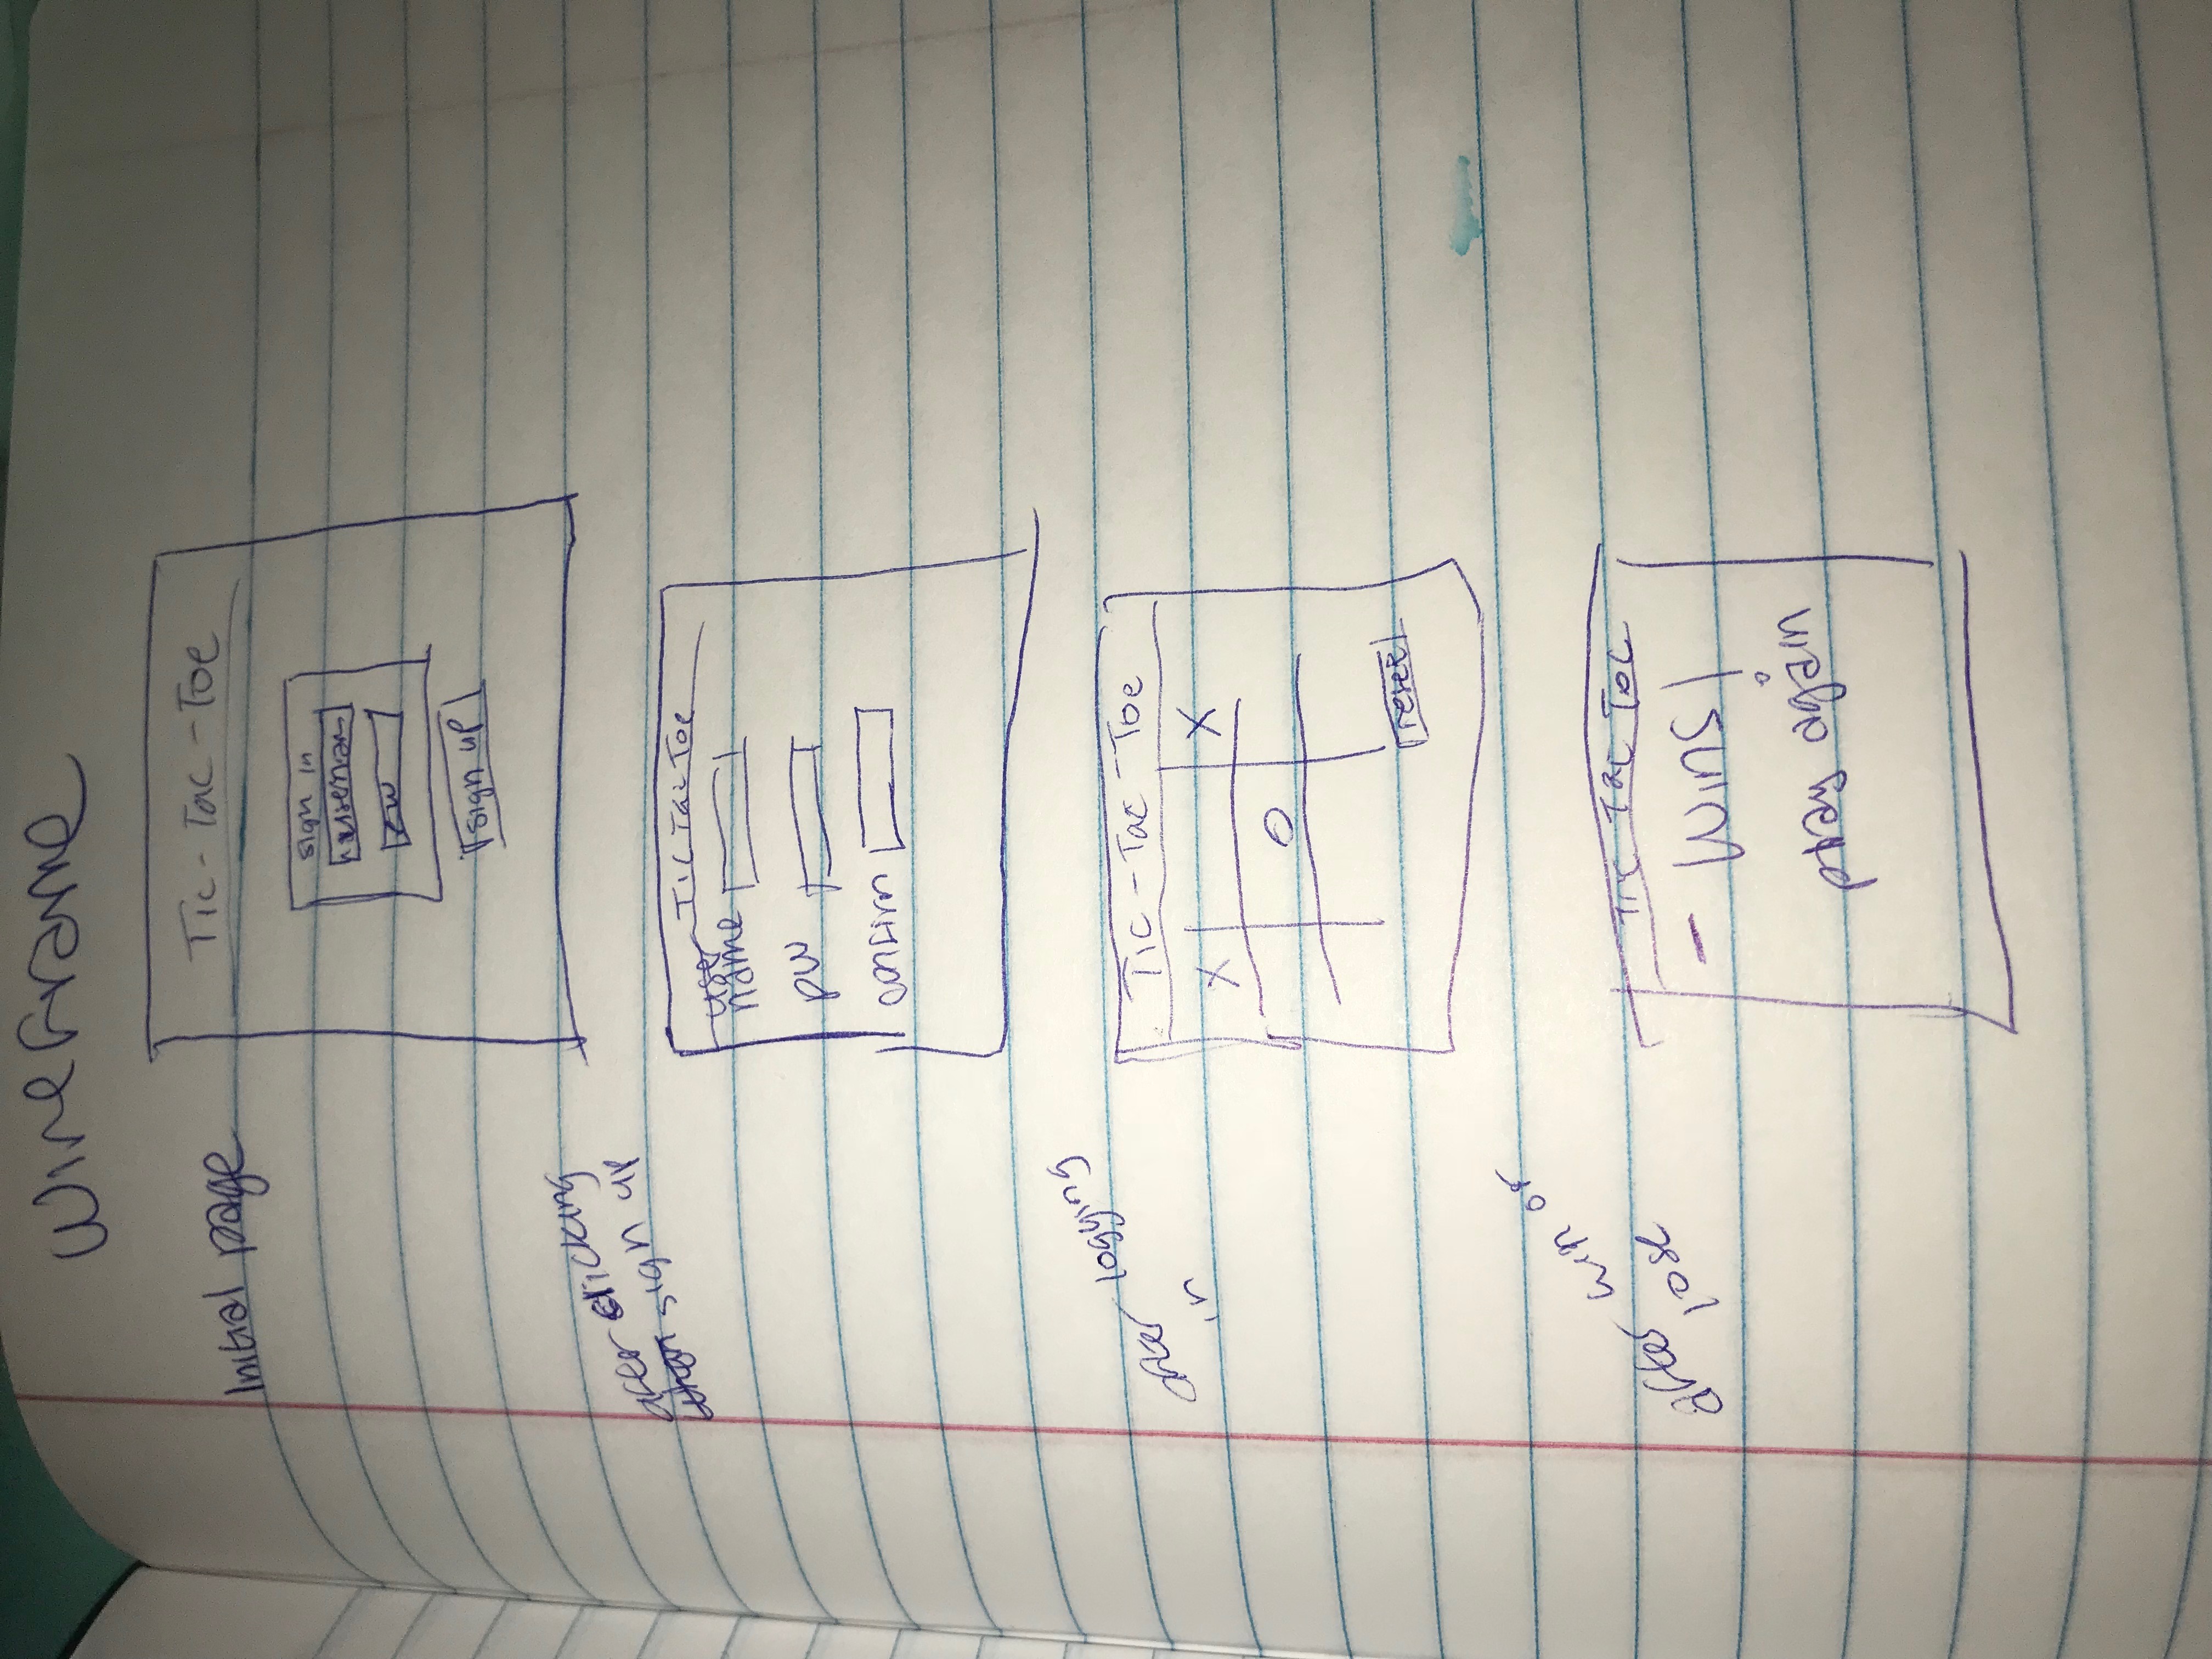 Wireframe
Initial page
Tic-Tac-Toe
sign in
username
PW
sign up
after clicking
sign up
Tic Tac Toe
user
name
pw
confirm
after logging
in
Tic-Tac-Toe
X X
O
reset
after win or
lose
Tic Tac Toe
- Wins!
play again